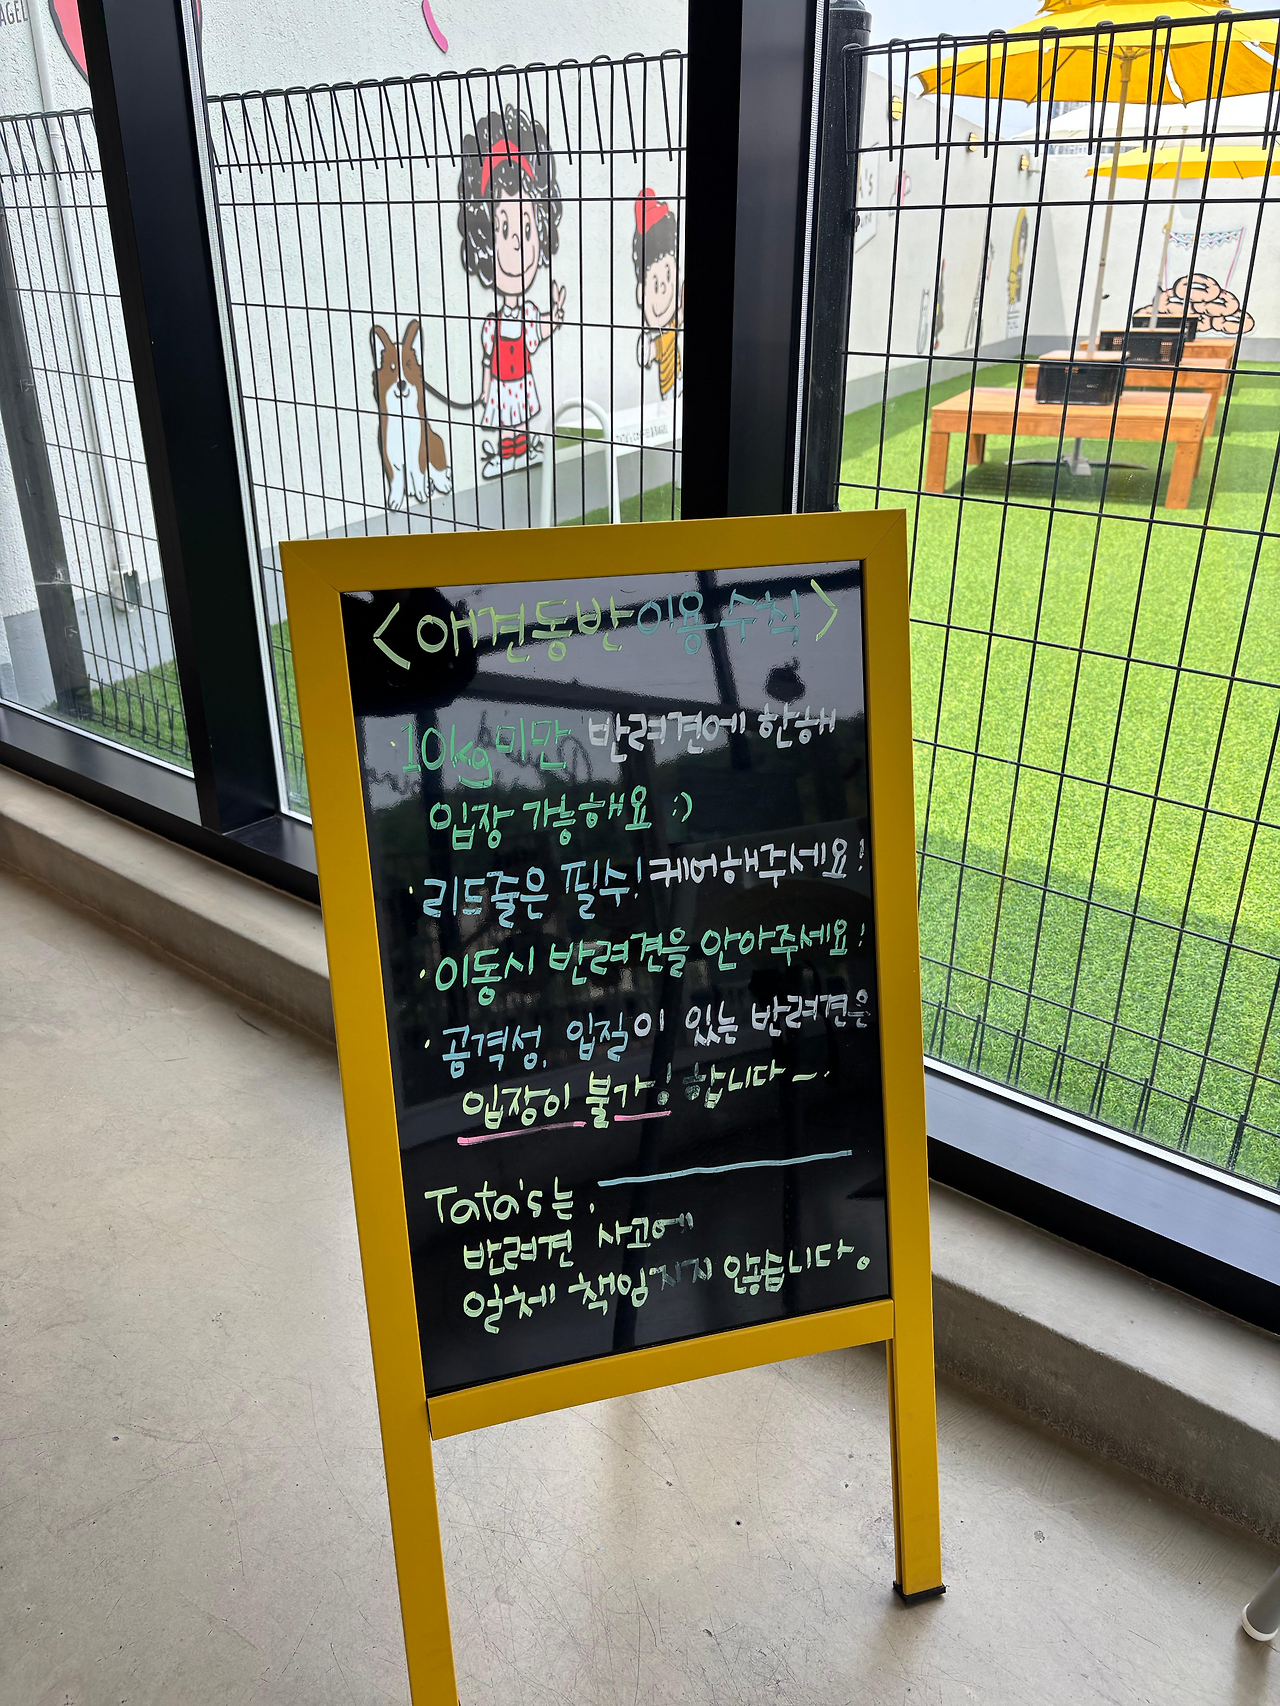 AGEL
<애견동반 이용수칙>
· 10kg미만 반려견에 한해
입장 가능해요 :)
· 리드줄은 필수! 케어해주세요!
· 이동시 반려견을 안아주세요!
· 공격성, 입질이 있는 반려견은
입장이 불가! 합니다~.
Tata's는.
반려견 사고에
일체 책임지지 않습니다.